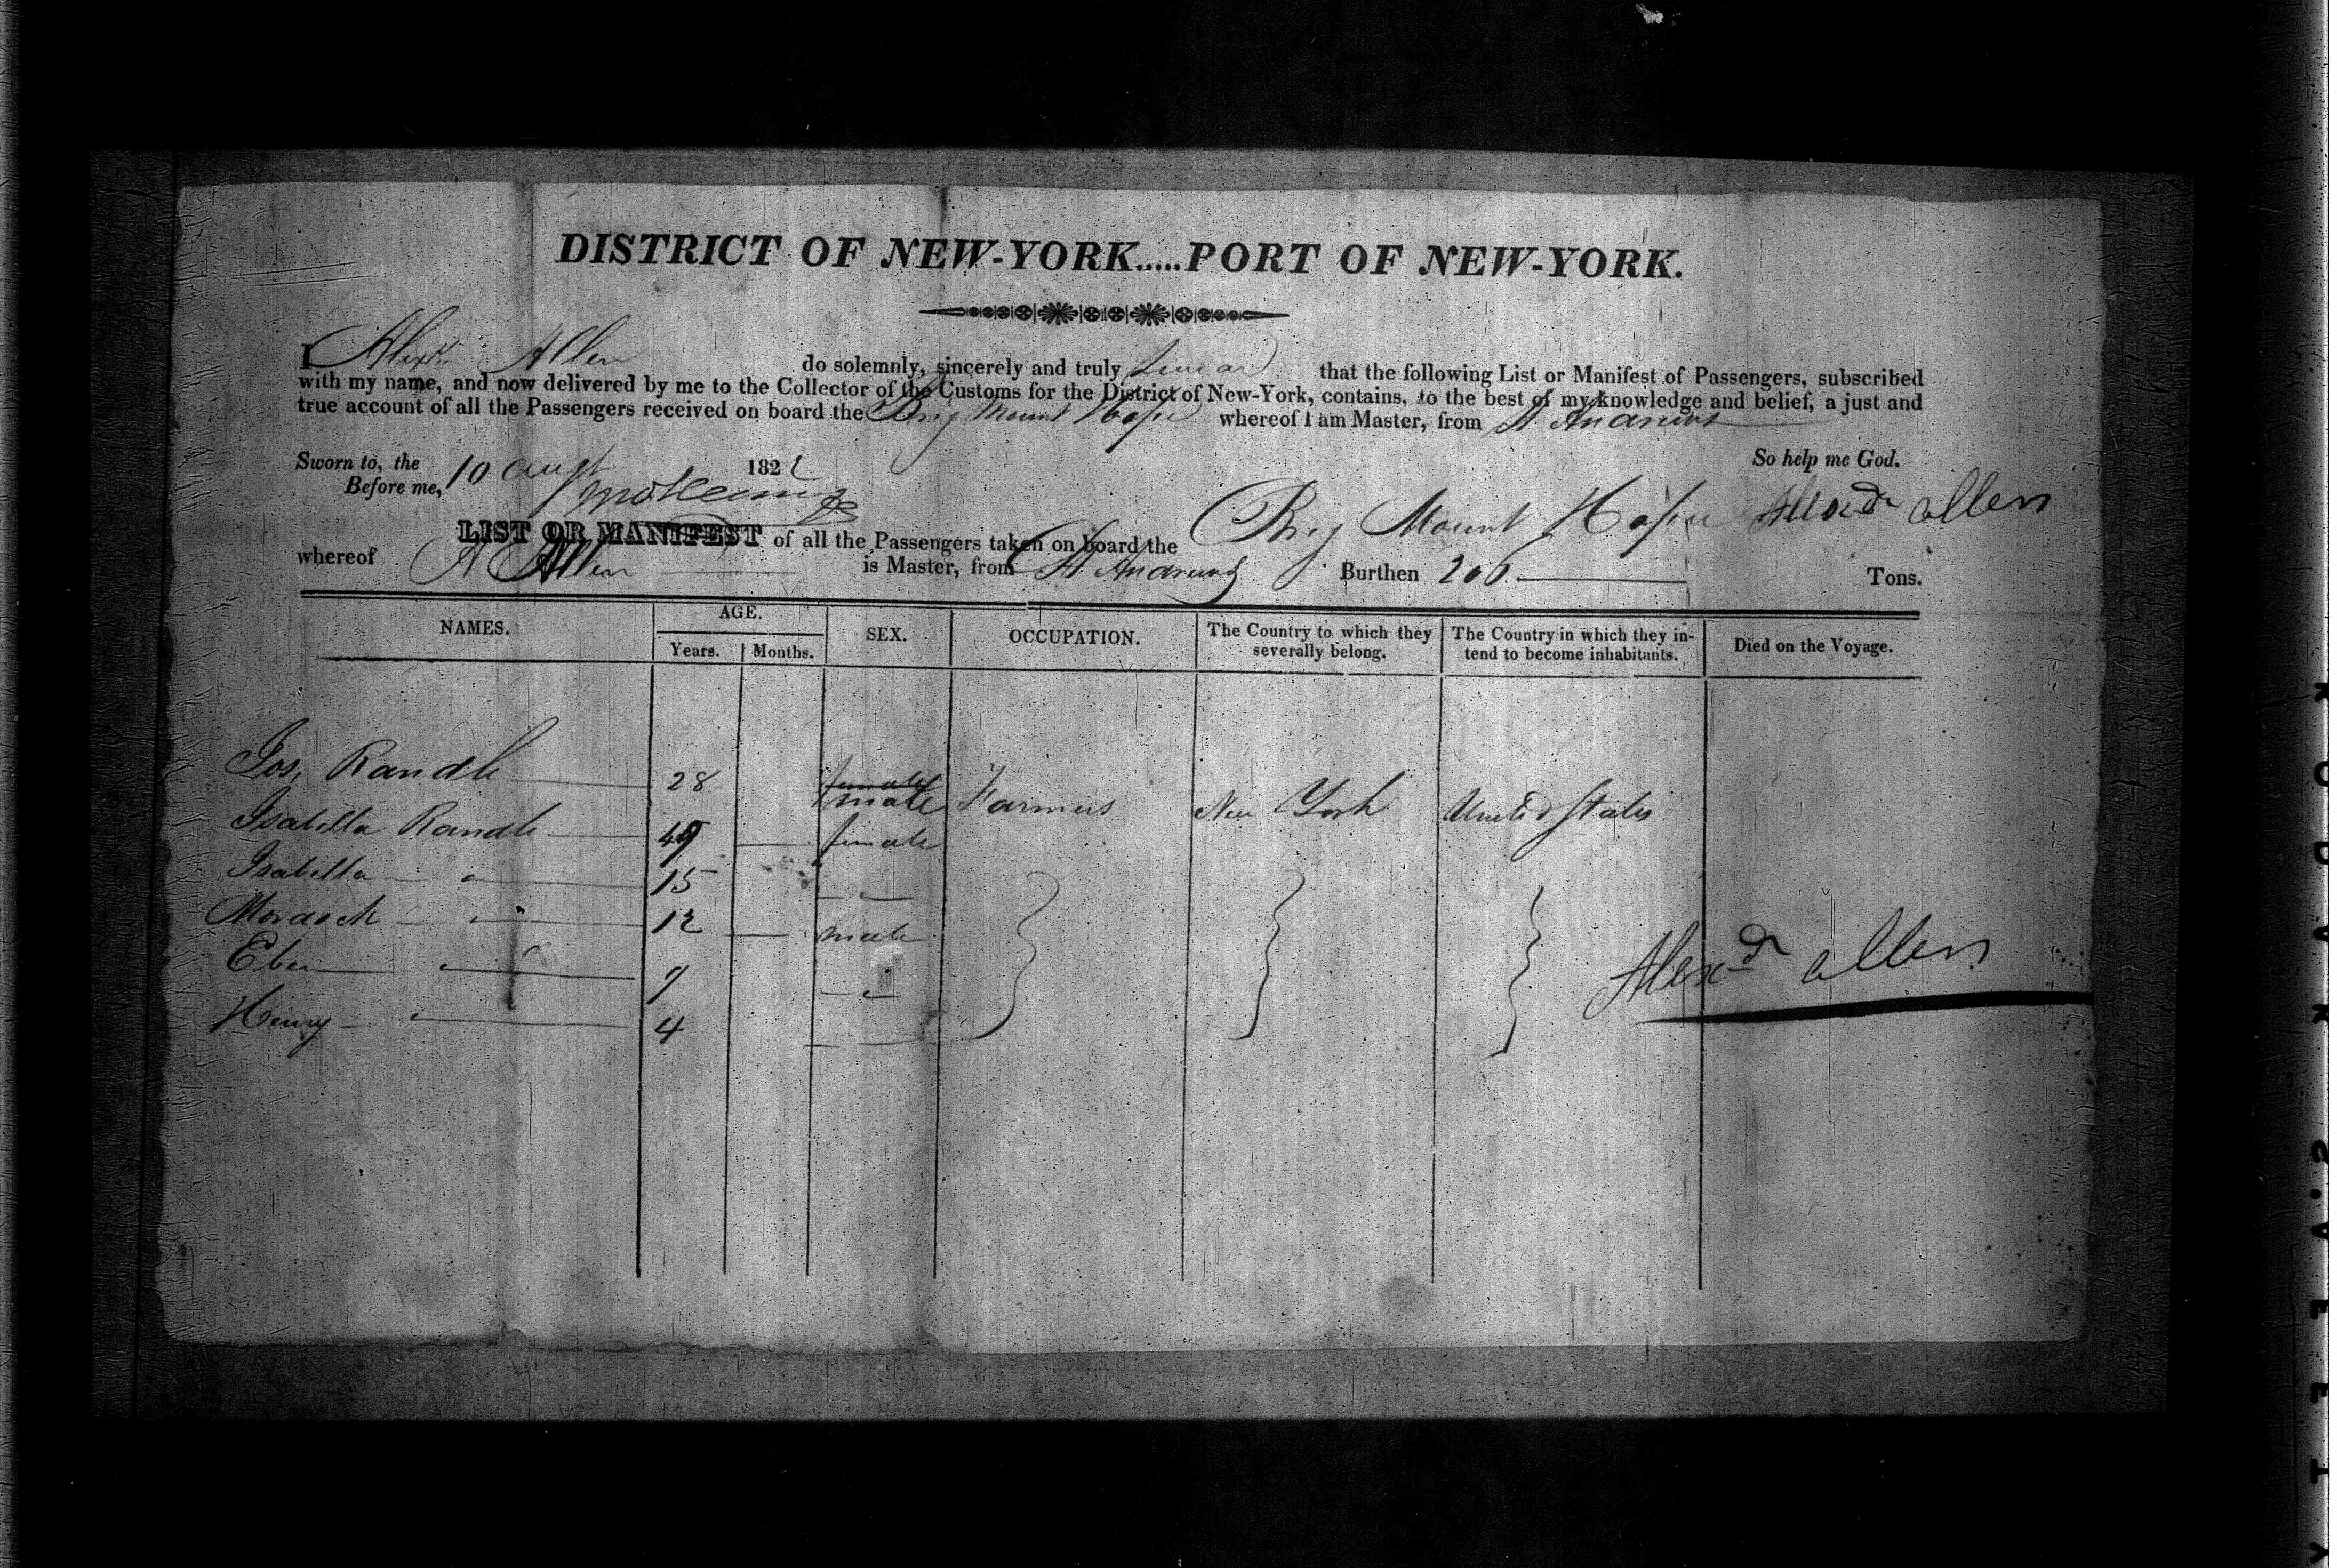 DISTRICT OF NEW-YORK.....PORT OF NEW-YORK.
I Alexdr Allen do solemnly, sincerely and truly swear that the following List or Manifest of Passengers, subscribed
with my name, and now delivered by me to the Collector of the Customs for the District of New-York, contains, to the best of my knowledge and belief, a just and
true account of all the Passengers received on board the Brig Mount Hope whereof I am Master, from St Andrews
Sworn to, the 10 augt 1822 So help me God.
Before me,
Alexdr allen
LIST OR MANIFEST of all the Passengers taken on board the Brig Mount Hope
whereof A Allen is Master, from St Andrews Burthen 206 Tons.
NAMES. AGE. SEX. OCCUPATION. The Country to which they severally belong. The Country in which they intend to become inhabitants. Died on the Voyage.
Years. Months.
Jos, Randle 28 female male Farmers New York United States
Isabella Randle female
Isabella " 15 "
12 male
Eben " 9 "
Henry " 4
Alexdr allen